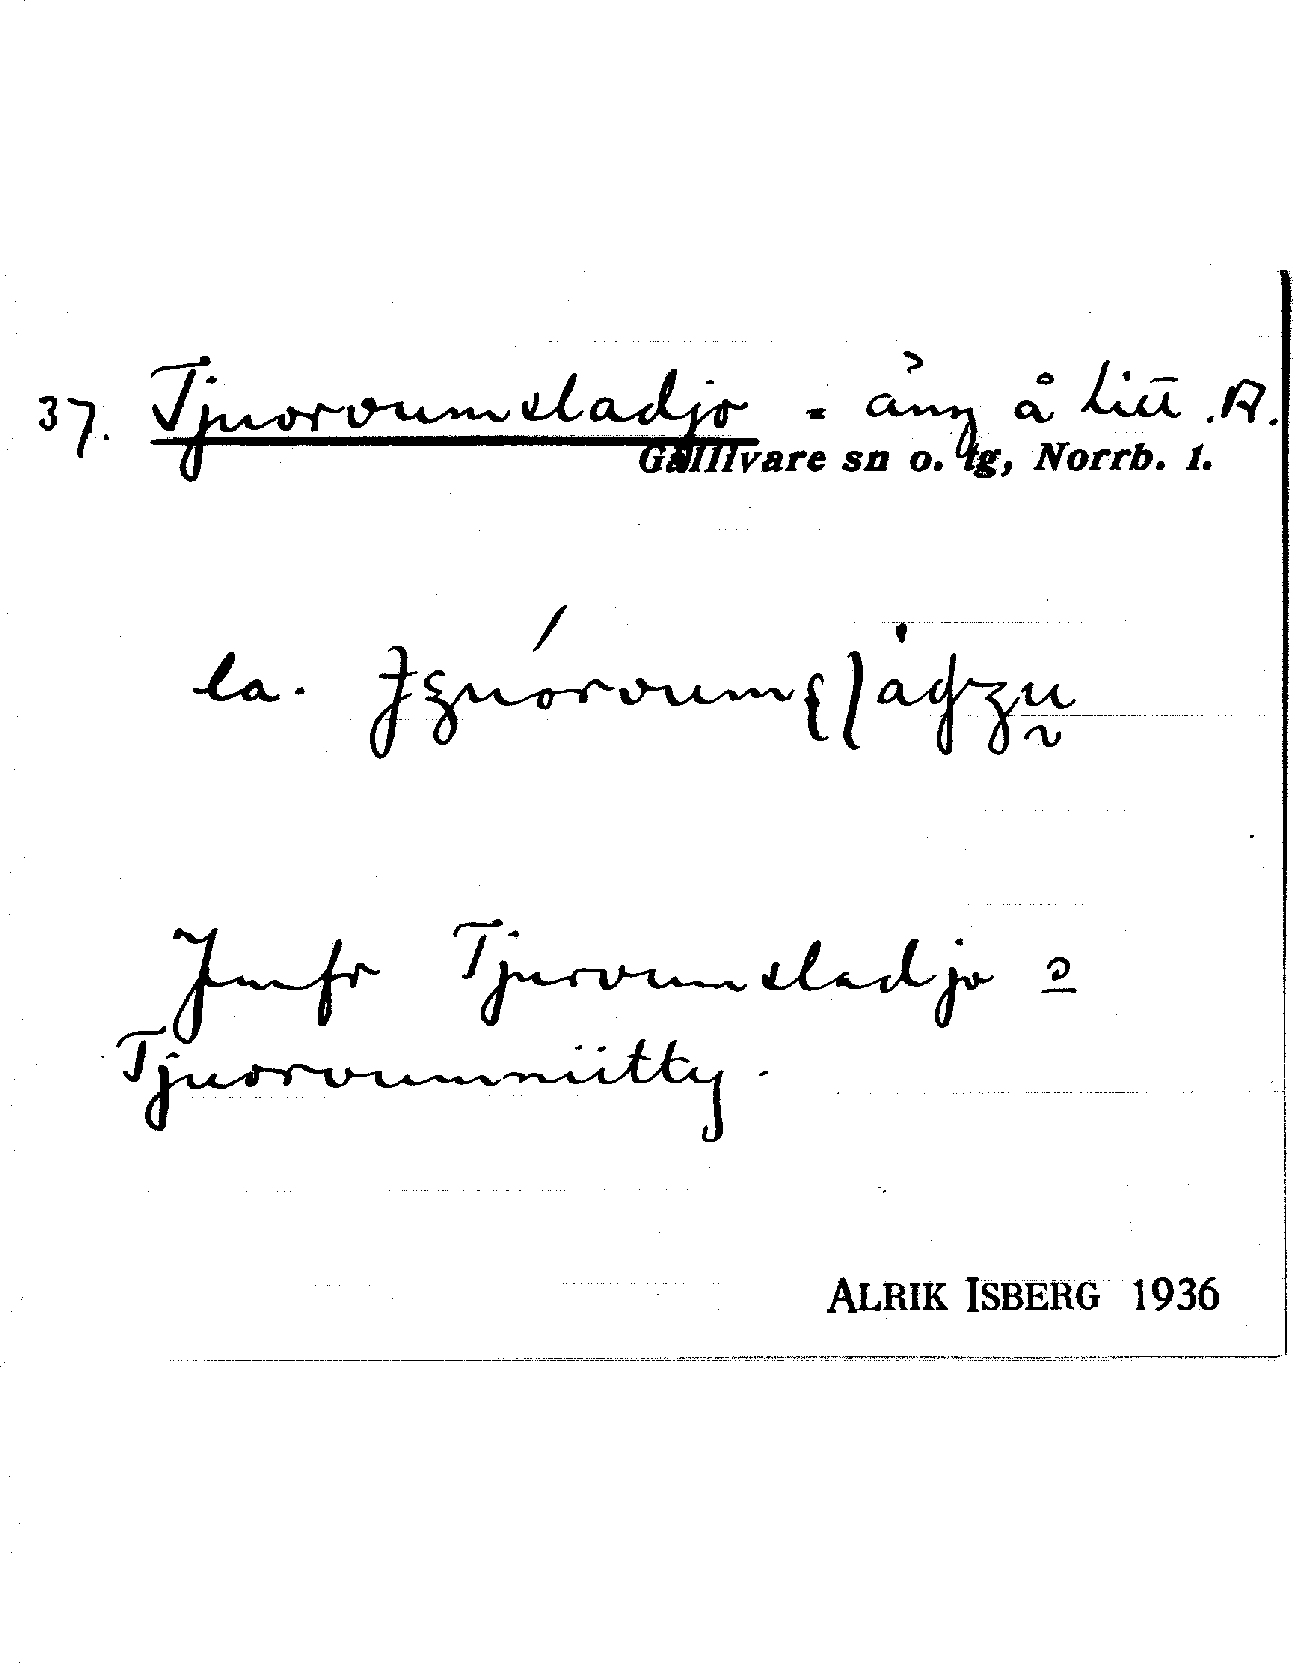 37. Tjuorvumsladjo = äng å litt. A.
Gällivare sn o. tg, Norrb. l.
la.
Jmfr Tjurvumsladjo o
Tjuorvumniitty.
ALRIK ISBERG 1936